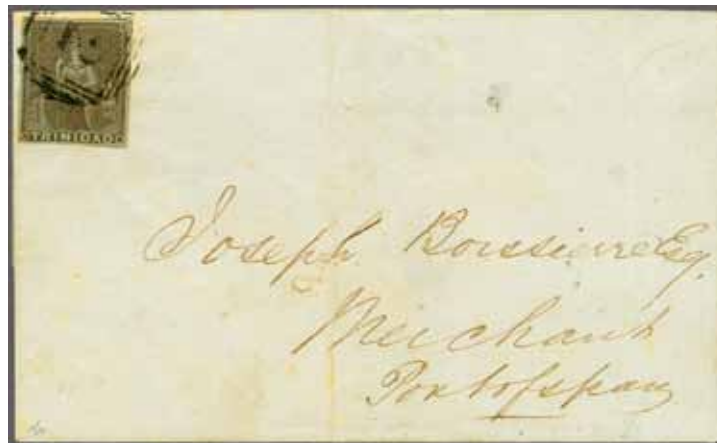 TRINIDAD
Joseph Boissiere Esq.
Merchant
Port of Spain